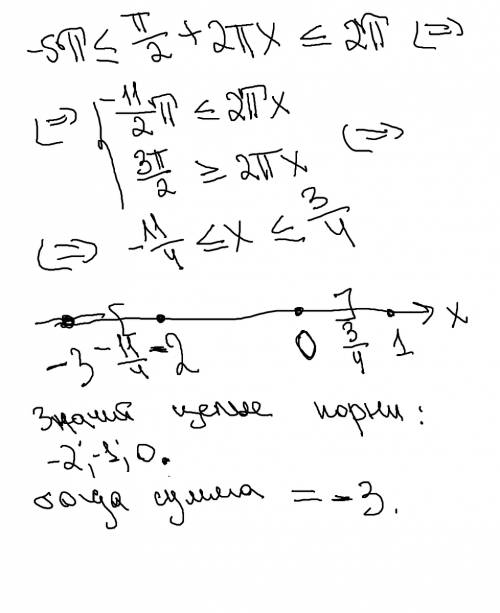 -5π ≤ π/2 + 2πx ≤ 2π ⟺
⟺ { -11/2 π ≤ 2πx
3π/2 ≥ 2πx ⟺
⟺ -11/4 ≤ x ≤ 3/4
-3 -11/4 -2 0 3/4 1 x
Значит целые корни:
-2; -1; 0.
тогда сумма = -3.